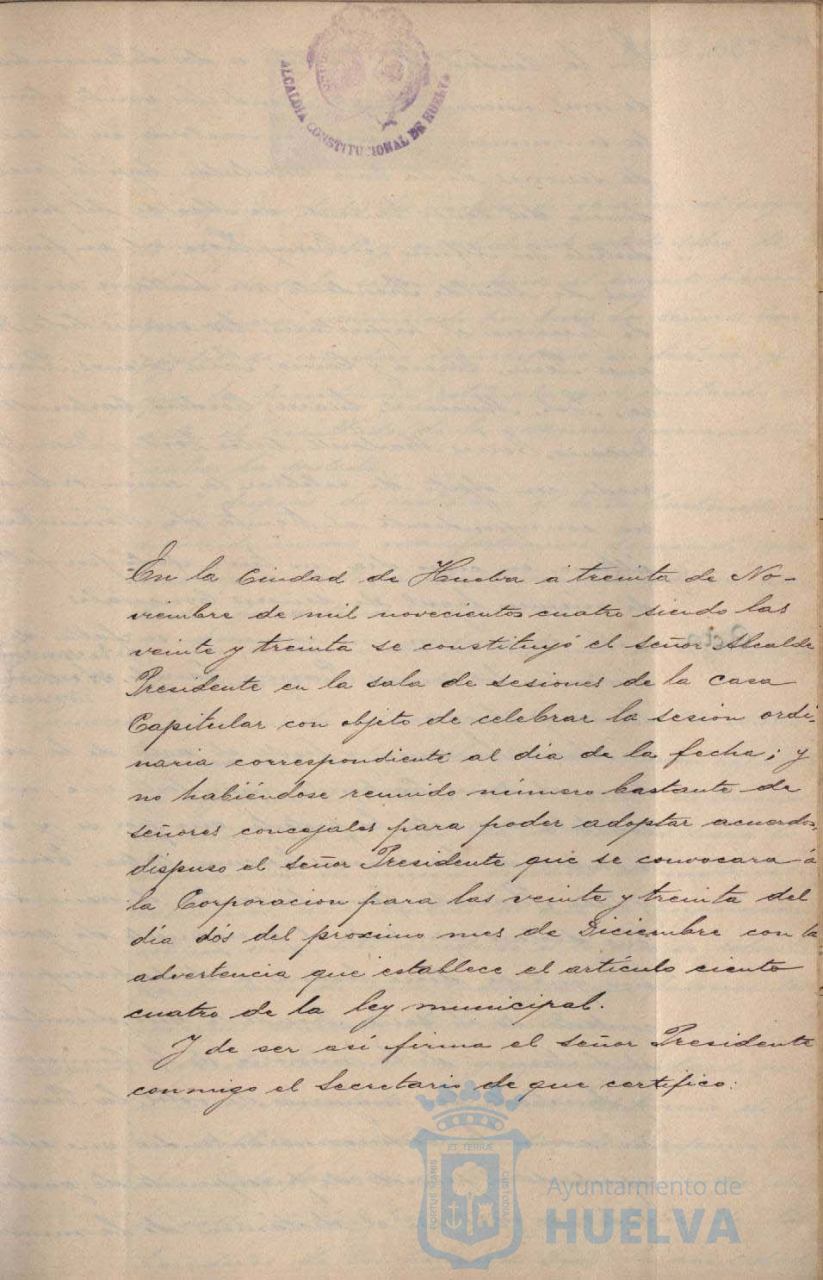 ALCALDIA CONSTITUCIONAL DE HUELVA
En la Ciudad de Huelva á treinta de No-
viembre de mil novecientos cuatro siendo las
veinte y treinta se constituyó el señor Alcalde
Presidente en la sala de sesiones de la casa
Capitular con objeto de celebrar la sesión ordi-
naria correspondiente al dia de la fecha; y
no habiéndose reunido número bastante de
señores concejales para poder adoptar acuerdos,
dispuso el señor Presidente que se convocara á
la Corporacion para las veinte y treinta del
día dós del proximo mes de Diciembre con la
advertencia que establece el artículo ciento
cuatro de la ley municipal.
Y de ser así firma el señor Presidente
conmigo el Secretario de que certifico:
PORTUS MARIS
ET TERRÆ
CUSTODIA
Ayuntamiento de
HUELVA